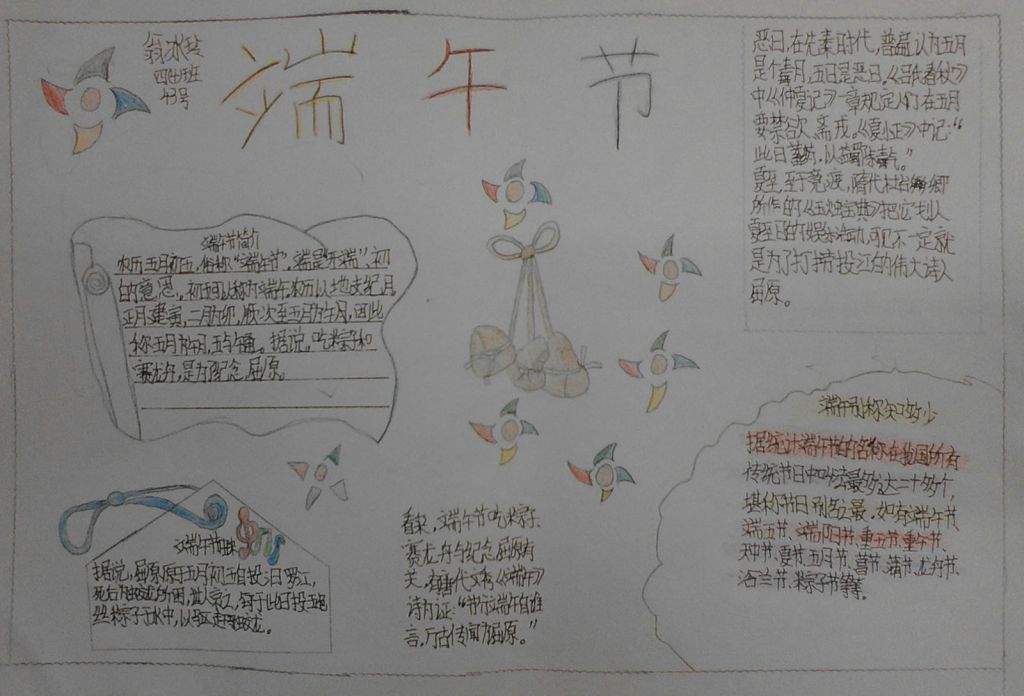 翁冰玲
四(4)班
43号
端午节
恶日,在先秦时代,普遍认为五月
是个毒月,五日是恶日。《吕氏春秋》
中《仲夏记》一章规定人们在五月
要禁欲、斋戒。《夏小正》中记:“
此日蓄药,以蠲除毒气。”
夏至,至于竞渡,隋代杜台卿
所作的《玉烛宝典》把它划入
夏至日的娱乐活动,可见不一定就
是为了打捞投江的伟大诗人
屈原。
端午节简介
农历五月初五,俗称“端午节”,端是“开端”、初
的意思。初五可以称为端午。农历以地支纪月
正月建寅,二月为卯,顺次至五月为午月,因此
称五月为午月,五与午通。据说,吃粽子和
赛龙舟,是为了纪念屈原。
端午别称知多少
据统计端午节的名称在我国所有
传统节日中叫法最多,达二十多个,
堪称节日别名之最。如有端午节、
端五节、端阳节、重五节、重午节、
天中节、夏节、五月节、菖节、蒲节、龙舟节、
浴兰节、粽子节等等。
端午节
据说,屈原于五月初五自投汨罗江,
死后为蛟龙所困,世人哀之,每于此日投五色
丝粽子于水中,以驱赶蛟龙。
看来,端午节吃粽子、
赛龙舟与纪念屈原有
关,有唐代文秀《端午》
诗为证:“节分端午自谁
言,万古传闻为屈原。”